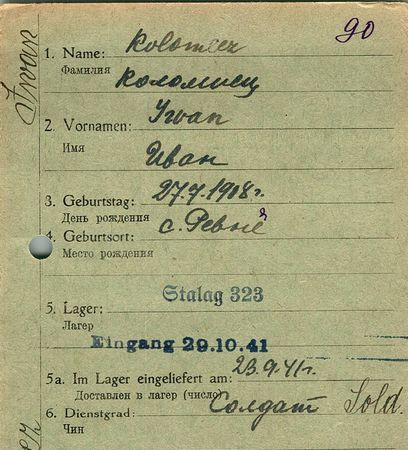 90
Iwan
1. Name: Kolomeez
Фамилия
Коломиец
2. Vornamen: Iwan
Имя
Иван
3. Geburtstag: 27.7.1908 г.
День рождения
4. Geburtsort: с. Ревне
Место рождения
Stalag 323
5. Lager:
Лагер
Eingang 29.10.41
5a. Im Lager eingeliefert am: 23.9.41 г.
Доставлен в лагер (число)
6. Dienstgrad: Солдат Sold.
Чин